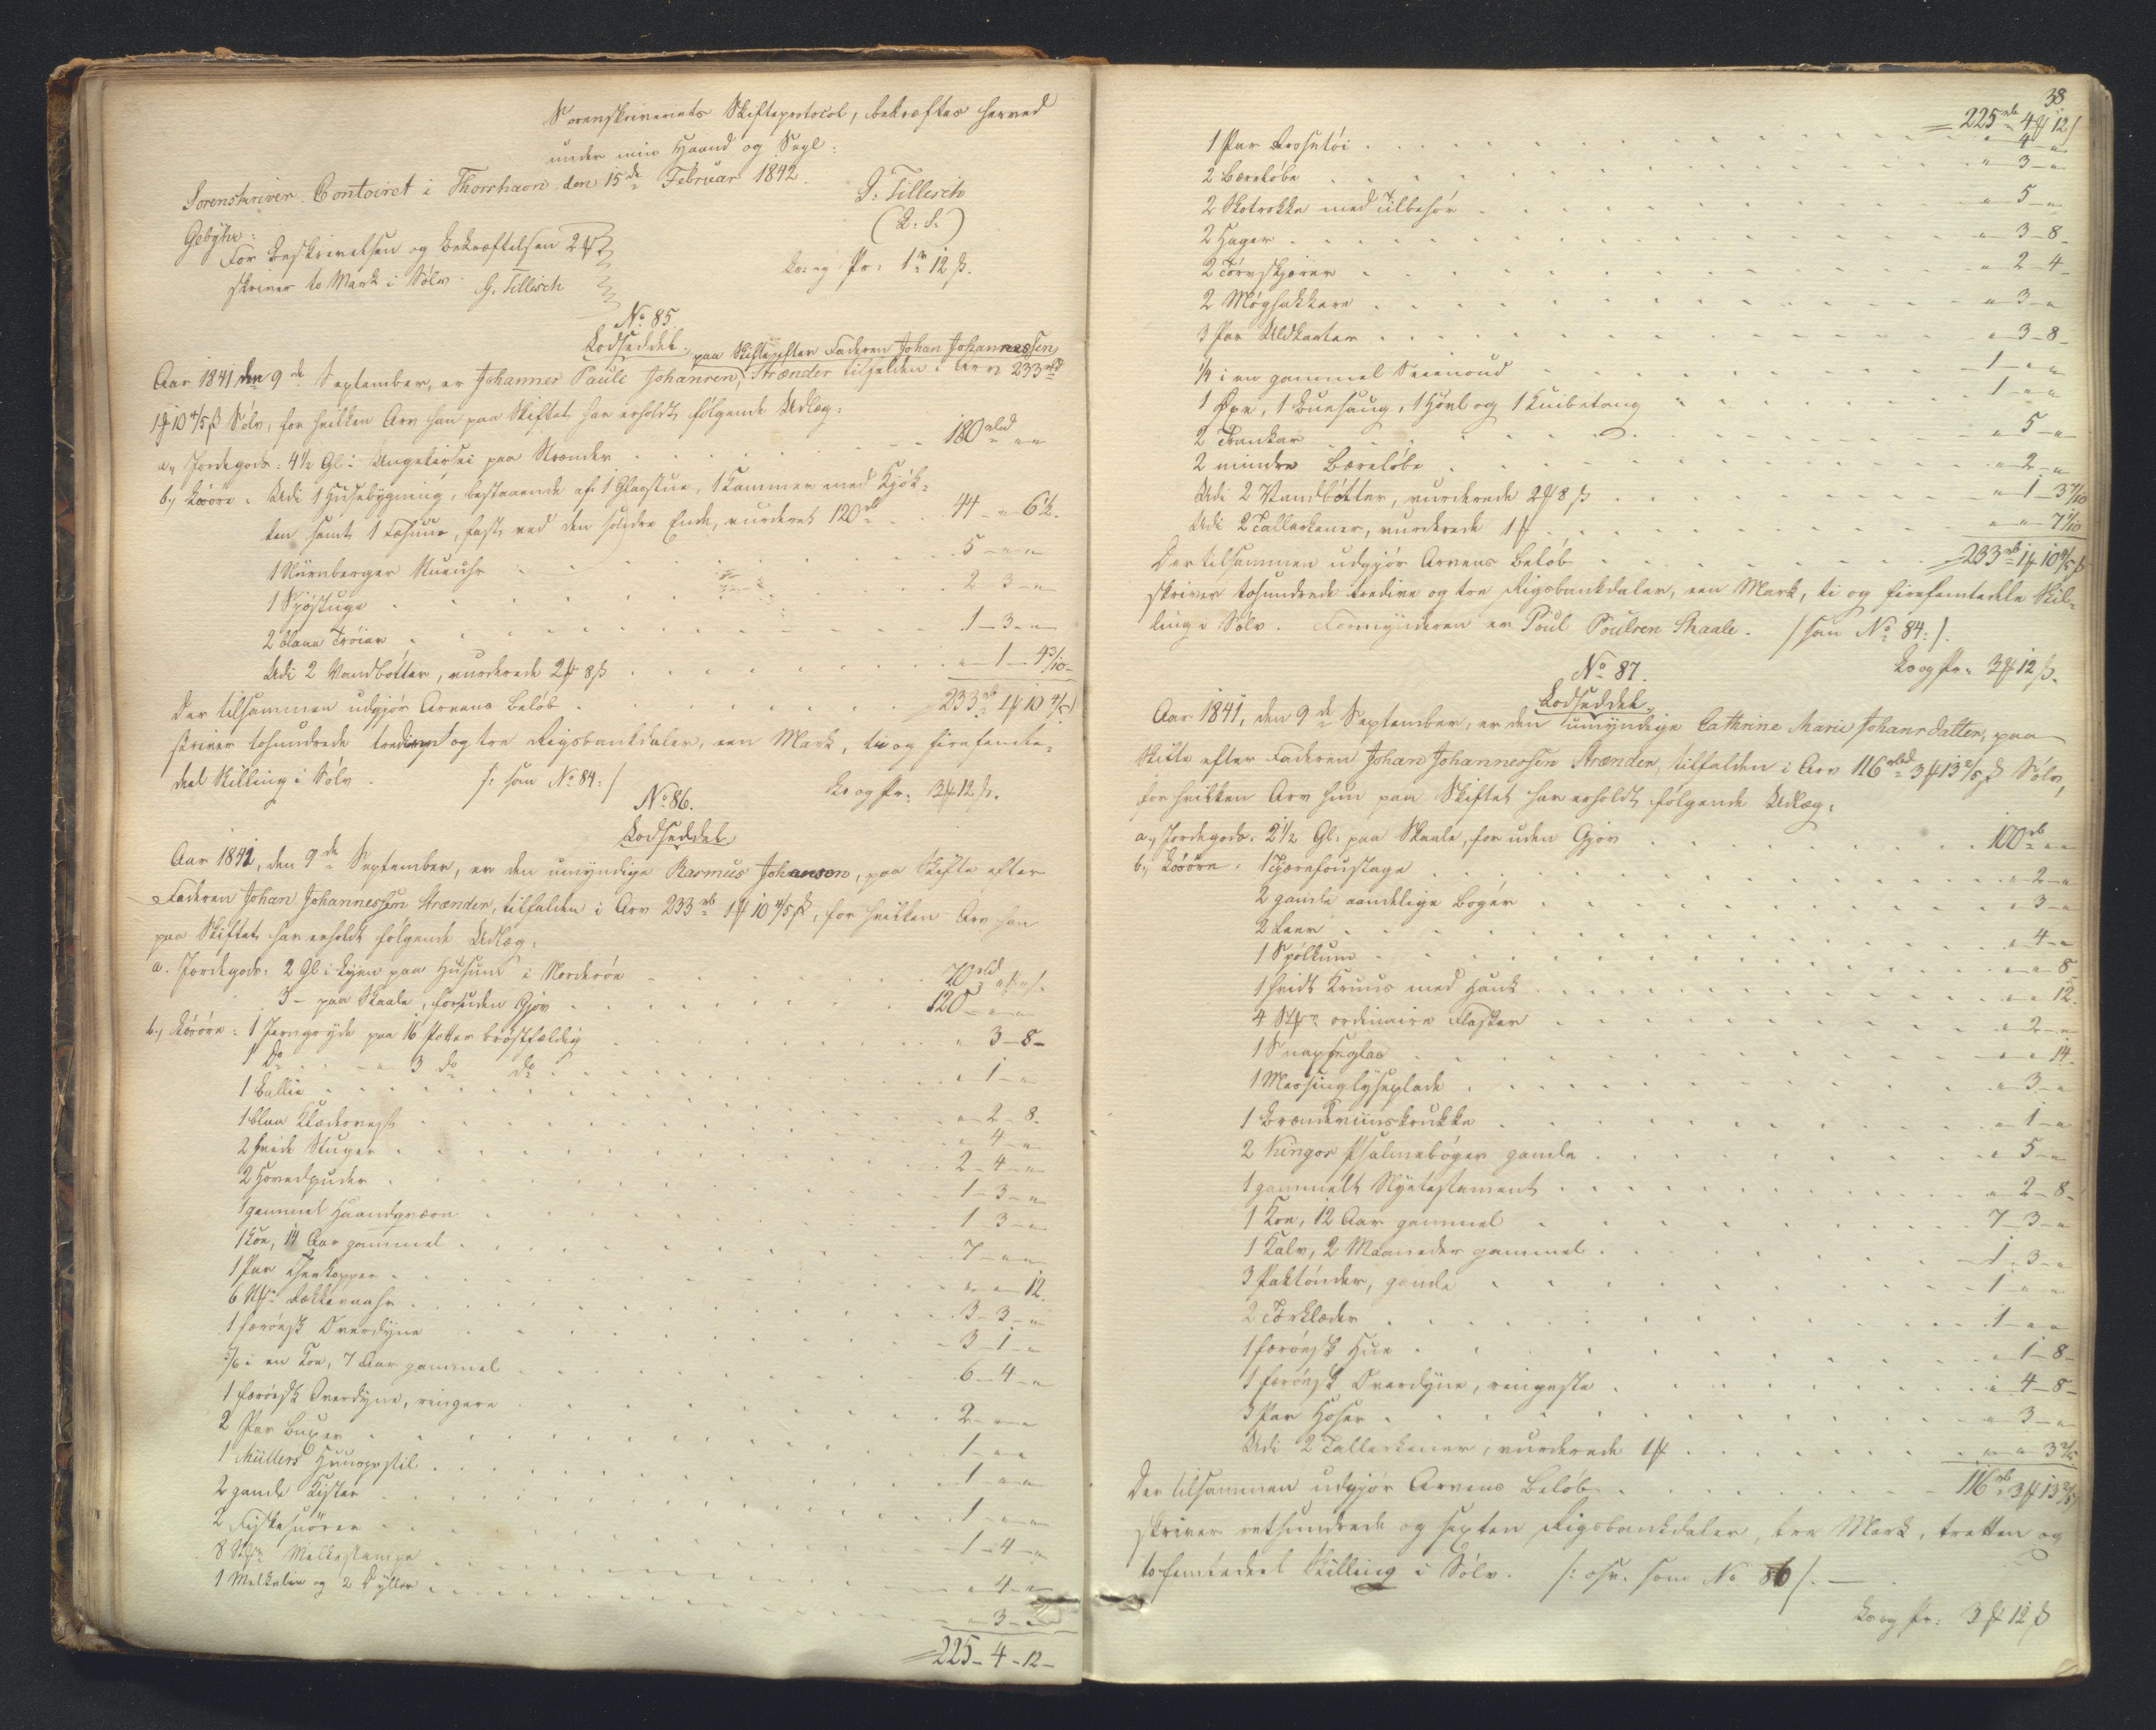 Sorenskriveriets Skifteprotocol, bekræftes herved
under min Haand og Segl.
Sorenskriver Contoiret i Thorshavn den 15de Februar 1842.
G: Tillisch
(L. S.)
Gebyhr:
For Beskrivelsen og Bekræftelsen 2 ℳ
skriver to Mark i Sølv. G. Tillisch
Læs og Pr: 1 ℳ 12 ß.
No 85.
Lodseddel.
Aar 1841 den 9de September, er Johannes Pauli Johansen, paa Skiftet efter Faderen Johan Johannessen
Strænder tilfalden i Arv 233 rbd
1 ℳ 10 4/5 ß Sølv, for hvilken Arv han paa Skiftet har erholdt følgende Udlæg:
a., Jordegods: 4 1/2 Gl: paa Strænder . . . 180 rbd " "
b., Løsøre: Udi 1 Huusbygning, bestaaende af: 1 Glasstue, 1 Kammer med Kjøk-
ken samt 1 , fast ved den søndre Ende, vurderet 120 rb . . 44 - " 6 1/2.
1 Nürnberger Stueuhr . . . 5 - " - "
1 . . . 2 3 - "
2 blaae Trøier . . . 1 - 3 - "
Udi 2 Vandbøtter, vurderede 2 ℳ 8 ß . . . " - 1 - 4 3/10 -
Der tilsammen udgjør Arvens Beløb . . . 233 rb 1 ℳ 10 4/5 ß
skriver tohundrede tredive og tre Rigsbankdaler, een Mark, ti og firefemte-
deel Skilling i Sølv. /: som No 84: /
Læs og Pr: 3 ℳ 12 ß.
No 86.
Lodseddel
Aar 1841, den 9de September, er den umyndige Rasmus Johansen, paa Skifte efter
Faderen Johan Johannessen Strænder, tilfalden i Arv 233 rb 1 ℳ 10 4/5 ß, for hvilken Arv han
paa Skiftet har erholdt følgende Udlæg:
a. Jordegods: 2 Gl: i paa Husum i Norderøe . . . 70 rbd " ℳ " ß.
3 - paa Skaale, foruden Gjøv . . . 120 - " - "
b., Løsøre: 1 Jerngryde paa 16 Potter brøstfældig . . . " 3 - 8 -
1 Do . . - " - 3 do do . . . " 1 - "
1 Ballie . . . " - 2 - 8.
1 blaa Klædesvest . . . " 4 - "
2 hvide Stuger . . . 2 - 4 - "
2 Hovedpuder . . . 1 - 3 - "
1 gammel Haandqværn . . . 1 - 3 - "
1 Koe, 14 Aar gammel . . . 7 - " - "
1 Par Theekopper . . . " - " 12.
6 . . . 3 - 3 - "
1 færøesk Overdyne . . . 3 - 1 - "
5/6 i en Koe, 7 Aar gammel . . . 6 - 4 - "
1 færøesk Overdyne, ringere . . . 2 - " - "
2 Par Buxer . . . 1 - " "
1 Müllers Huuspostil . . . 1 - " - "
2 gamle Kister . . . 1 - " - "
2 Fiskesnører . . . 1 - 4 - "
8 Stkr . . . " 4 - "
1 og 2 . . . " 3 - "
225 - 4 - 12 -
38
225 rb 4 ℳ 12 ß
1 Par . . . " 4 - "
2 Bæreløbe . . . " 3 - "
2 Skotrokke med Tilbehør . . . " 5 - "
2 Hager . . . " 3 - 8 -
2 Tørvskjærer . . . " 2 - 4 -
2 Møghakkere . . . " - 3 - "
3 Par Uldkarter . . . " 3 - 8 -
1/4 i en gammel . . . 1 - " "
1 Øxe, 1 Buesaug, 1 Høvl og 1 Knibetang . . . 1 - " "
2 . . . " 5 - "
2 mindre Bæreløbe . . . " 2 - "
Udi 2 Vandbøtter, vurderede 2 ℳ 8 ß . . . " 1 - 3 7/10
Udi 2 Tallerkener, vurderede 1 ℳ . . . " " 7 1/10
Der tilsammen udgjør Arvens Beløb . . . 233 rb 1 ℳ 10 4/5 ß
skriver tohundrede tredive og tre Rigsbankdaler, een Mark, ti og firefemtedele Skil-
ling i Sølv. Formynderen er Poul Poulsen Skaale. / som No 84: /.
Læs og Pr: 3 ℳ 12 ß.
No 87.
Lodseddel.
Aar 1841, den 9de September, er den umyndige Cathrine Marie Johansdatter, paa
Skifte efter Faderen Johan Johannessen Strænder, tilfalden i Arv 116 rbd 3 ℳ 13 2/5 ß Sølv,
for hvilken Arv hun paa Skiftet har erholdt følgende Udlæg:
a., Jordegods: 2 1/2 Gl: paa Skaale, foruden Gjøv . . . 100 rb " "
b., Løsøre: 1 Tjærefoustage . . . " 2 - "
2 gamle aandelige Bøger . . . " 3 - "
2 Leer . . . " 4 - "
1 Spølkum . . . " " 8
1 hvidt Kruus med Hank . . . " " 12.
4 Stkr ordinaire Flasker . . . " 2 - "
1 Snapseglas . . . " " 14.
1 Messinglyseplade . . . " 3 - "
1 Brændeviinskrukke . . . " 1 - "
2 Kingos Psalmebøger gamle . . . " 5 - "
1 gammelt Nyetestament . . . " 2 - 8 -
1 Koe, 12 Aar gammel . . . 7 - 3 - "
1 Kalv, 2 Maaneder gammel . . . 1 - 3 - "
3 Saltønder, gamle . . . 1 - " "
2 Tørklæder . . . 1 - " "
1 færøesk Hue . . . " 1 - 8 -
1 færøesk Overdyne, ringeste . . . " 4 - 8 -
3 Par Hoser . . . " 3 - "
Udi 2 Tallerkener, vurderede 1 ℳ . . . " " 3 2/5
Der tilsammen udgjør Arvens Beløb . . . 116 rb 3 ℳ 13 2/5 ß
skriver eethundrede og sexten Rigsbankdaler, tre Mark, tretten og
tofemtedeel Skilling i Sølv. /: osv. som No 86 /. —
Læs og Pr: 3 ℳ 12 ß